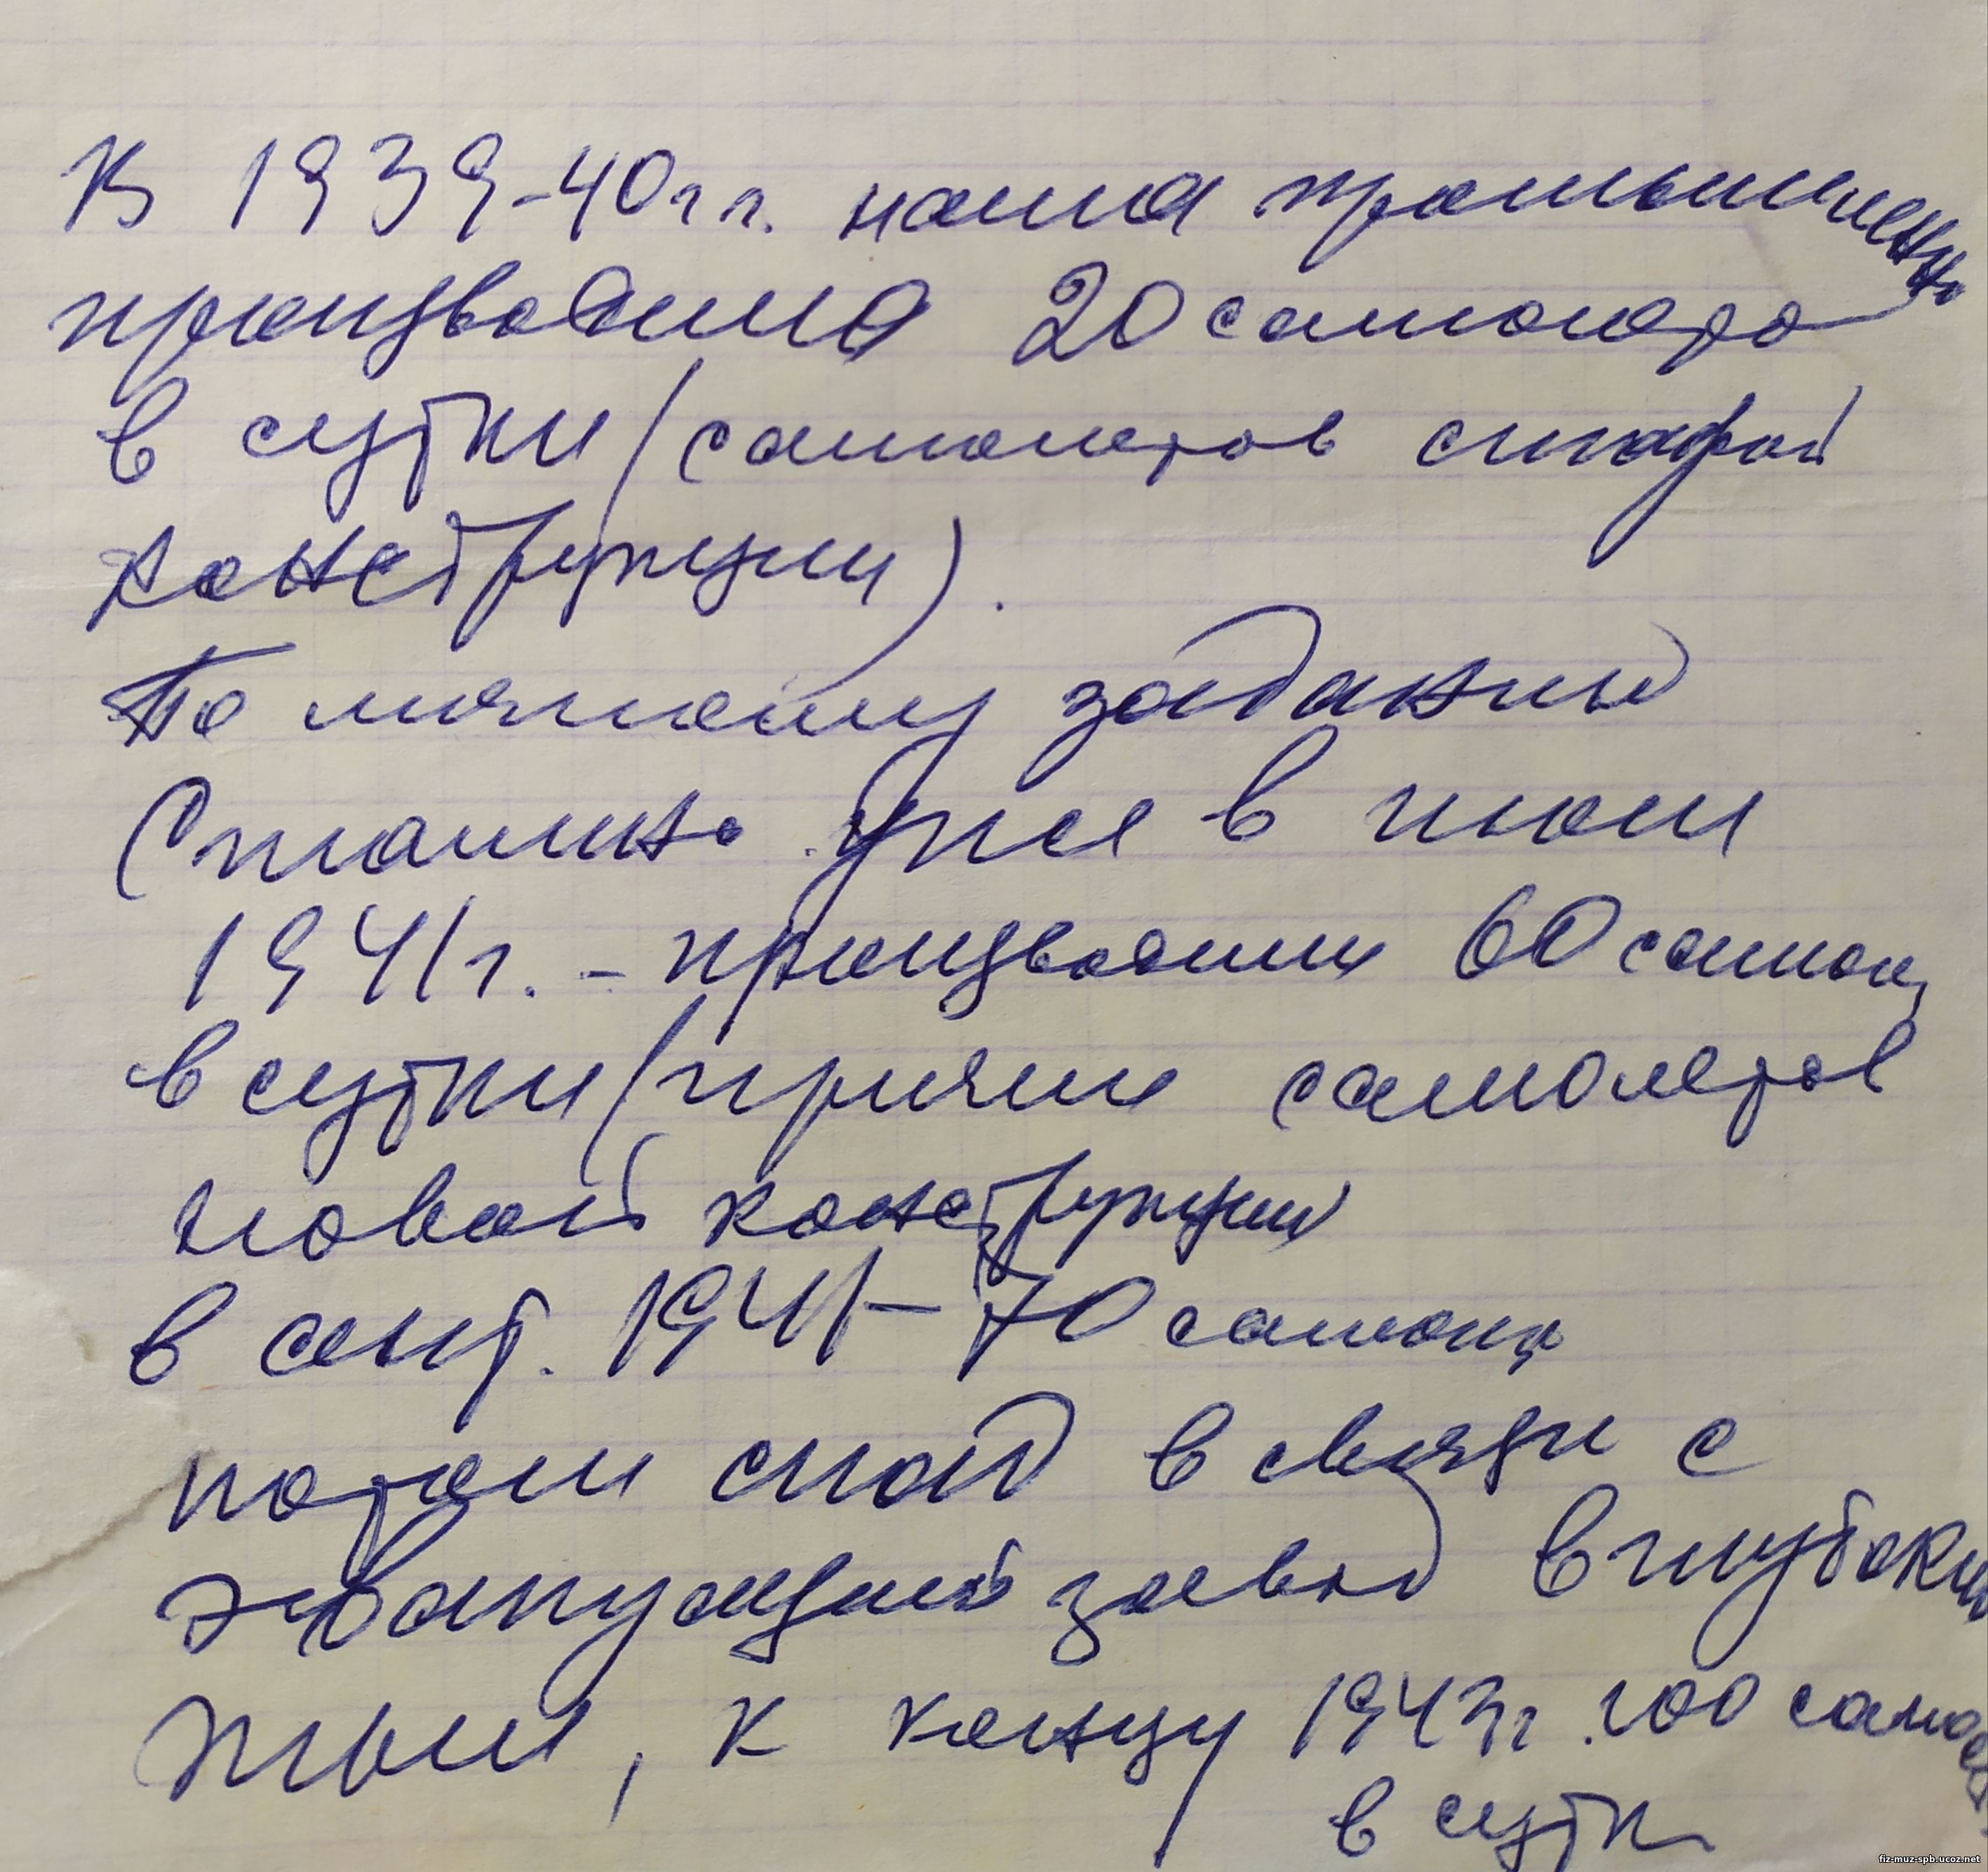 В 1939-40гг. наша промышленнь
производила 20 самолето
в сутки (самолетов старой
конструкции).
По личному заданию
Сталина уже в июле
1941г. - производили 60 самол,
в сутки (причем самолетов
новой конструкции
в сент. 1941 - 70 самол
потом спад в связи с
эвакуацией завод в глубокий
тыл, к концу 1943г. 100 самол
в сутк
fiz-muz-spb.ucoz.net